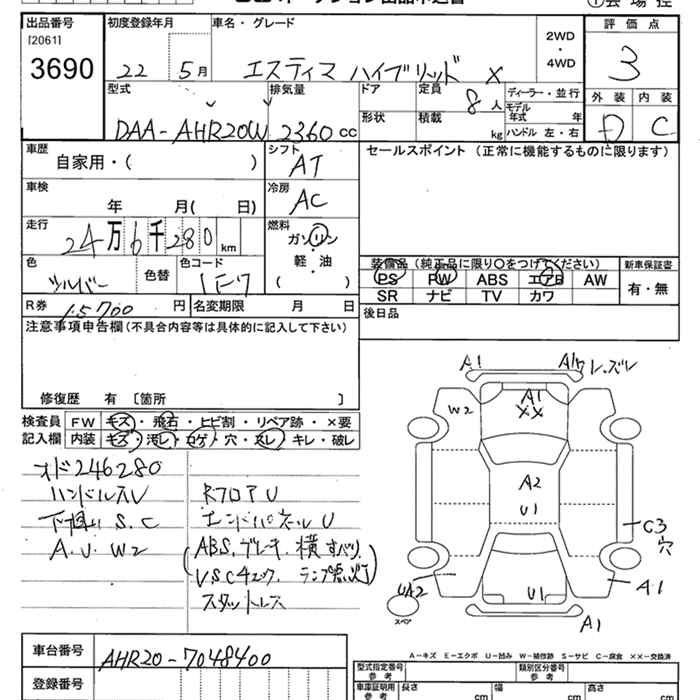 出品番号
[2061]
3690
初度登録年月
22 5月
車名・グレード
エスティマ ハイブリッド X
2WD
・
4WD
評価点
3
外装 内装
D C
型式
DAA-AHR20W
排気量
2360 cc
ドア
形状
定員
8人
積載
kg
ディーラー・並行
モデル年式 年
ハンドル 左・右
車歴
自家用・( )
シフト
AT
セールスポイント (正常に機能するものに限ります)
車検
年 月( 日)
冷房
AC
走行
24万6千280 km
燃料
ガソリン
軽・油
( )
色
シルバー
色替
色コード
1F7
装備品 (純正品に限り○をつけてください)
PS PW ABS エアB AW
SR ナビ TV カワ
新車保証書
有・無
R券
15700 円
名変期限 月 日
後日品
注意事項申告欄 (不具合内容等は具体的に記入して下さい)
修復歴 有 〔箇所 〕
検査員
記入欄
FW キズ・飛石・ヒビ割・リペア跡・×要
内装 キズ・汚レ・コゲ・穴・スレ・キレ・破レ
オド246280
ハンドルスレ
下廻り S.C
A.U.W2
RフロアU
エンドパネルU
(ABS.ブレーキ.横すべり.
V.S.Cチェック.ランプ点灯)
スタットレス
A1
A1
W2
A1
XX
A2
U1
C3
穴
UA2
U1
A1
A1
スペア
A-キズ E-エクボ U-凹み W-補修跡 S-サビ C-腐食 XX-交換済
車台番号
AHR20-7048400
登録番号
型式指定番号
参考
類別区分番号
参考
車庫証明用
参考
長さ cm 幅 cm 高さ cm